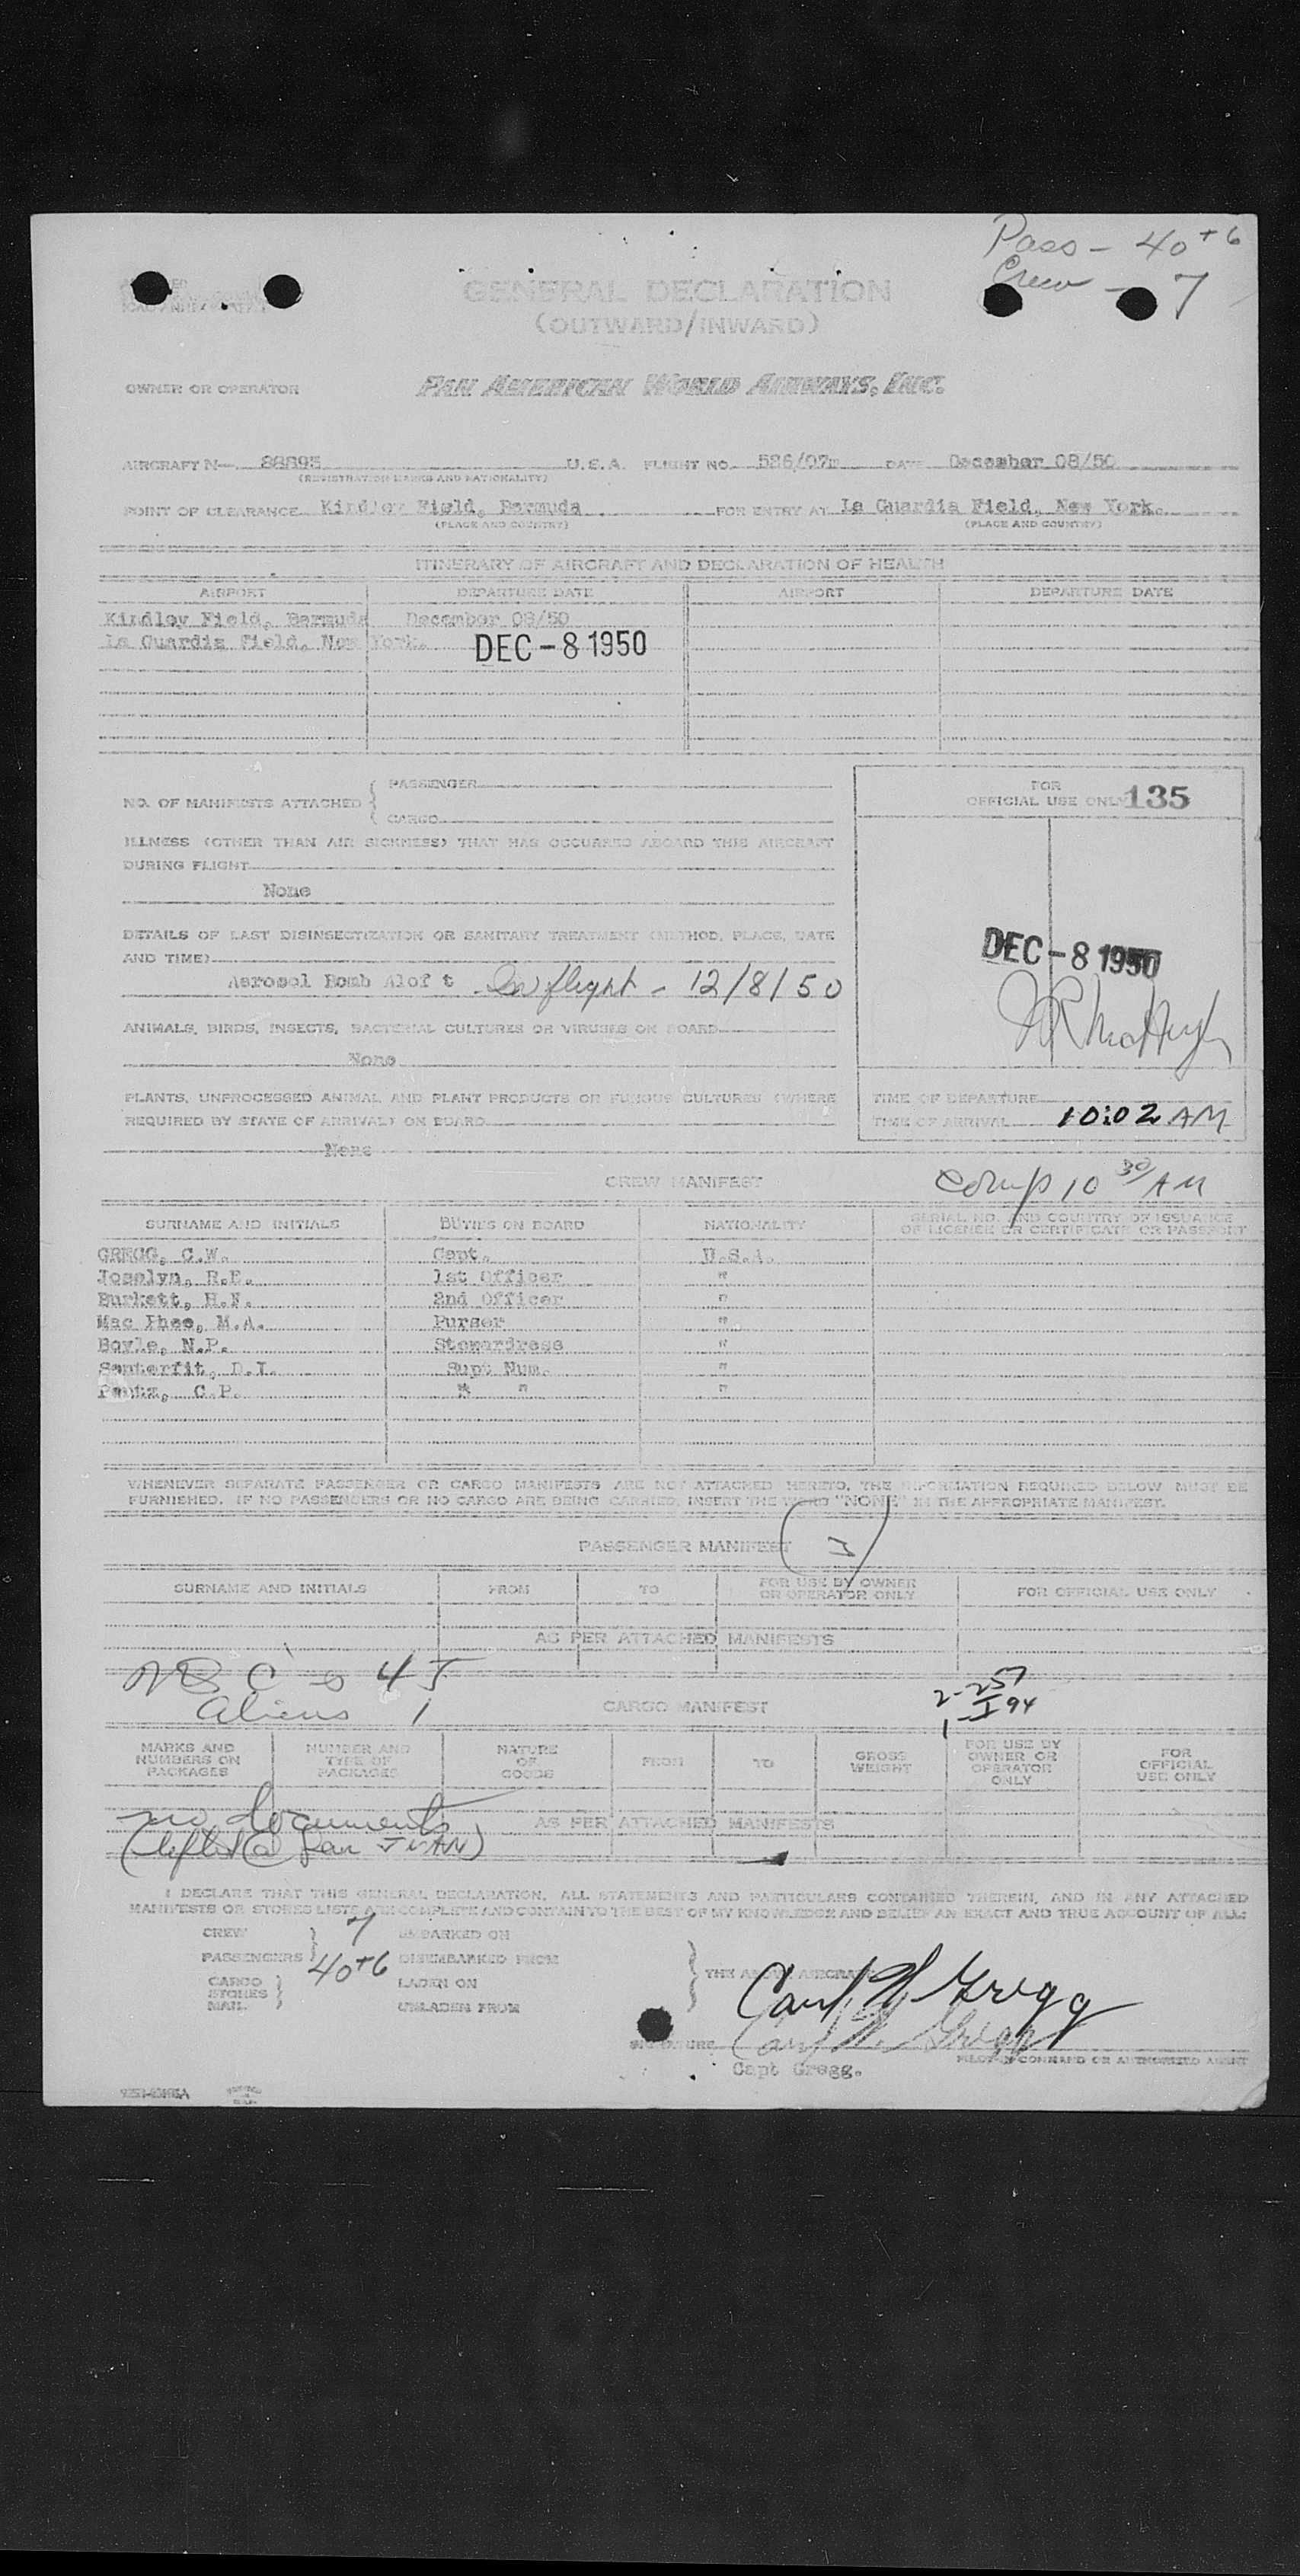 Pass - 40 + 6
Crew - 7
GENERAL DECLARATION
(OUTWARD/INWARD)
OWNER OR OPERATOR PAN AMERICAN WORLD AIRWAYS, INC.
AIRCRAFT N— U.S.A. FLIGHT NO. DATE December 08/50
(REGISTRATION MARKS AND NATIONALITY)
POINT OF CLEARANCE Kindley Field, Bermuda FOR ENTRY AT La Guardia Field, New York.
(PLACE AND COUNTRY) (PLACE AND COUNTRY)
ITINERARY OF AIRCRAFT AND DECLARATION OF HEALTH
AIRPORT DEPARTURE DATE AIRPORT DEPARTURE DATE
Kindley Field, Bermuda December 08/50
La Guardia Field, New York. DEC - 8 1950
NO. OF MANIFESTS ATTACHED { PASSENGER
CARGO
FOR
OFFICIAL USE ONLY 135
ILLNESS (OTHER THAN AIR SICKNESS) THAT HAS OCCURRED ABOARD THIS AIRCRAFT
DURING FLIGHT
None
DETAILS OF LAST DISINSECTIZATION OR SANITARY TREATMENT (METHOD, PLACE, DATE
AND TIME)
DEC - 8 1950
Aerosol Bomb Alof t Inflight - 12/8/50
ANIMALS, BIRDS, INSECTS, BACTERIAL CULTURES OR VIRUSES ON BOARD
None
PLANTS, UNPROCESSED ANIMAL AND PLANT PRODUCTS OR FUNGUS CULTURES (WHERE
REQUIRED BY STATE OF ARRIVAL) ON BOARD
None
TIME OF DEPARTURE
TIME OF ARRIVAL 10:02 AM
CREW MANIFEST Comp 10 30/AM
SURNAME AND INITIALS DUTIES ON BOARD NATIONALITY SERIAL NO. AND COUNTRY OF ISSUANCE
OF LICENSE OR CERTIFICATE OR PASSPORT
GREGG, C.W. Capt. U.S.A.
Joselyn, R.E. 1st Officer "
Burkett, H.N. 2nd Officer "
Mac Phee, M.A. Purser "
Boyle, N.P. Stewardess "
Santerfit, D.I. Supt Num. "
C.P. " " "
WHENEVER SEPARATE PASSENGER OR CARGO MANIFESTS ARE NOT ATTACHED HERETO, THE INFORMATION REQUIRED BELOW MUST BE
FURNISHED. IF NO PASSENGERS OR NO CARGO ARE BEING CARRIED, INSERT THE WORD "NONE" IN THE APPROPRIATE MANIFEST.
PASSENGER MANIFEST
SURNAME AND INITIALS FROM TO FOR USE BY OWNER
OR OPERATOR ONLY FOR OFFICIAL USE ONLY
AS PER ATTACHED MANIFESTS
45
Aliens 1
CARGO MANIFEST
2-257
1-I 94
MARKS AND
NUMBERS ON
PACKAGES NUMBER AND
TYPE OF
PACKAGES NATURE
OF
GOODS FROM TO GROSS
WEIGHT FOR USE BY
OWNER OR
OPERATOR
ONLY FOR
OFFICIAL
USE ONLY
no documents
(lifted @ San JUAN)
AS PER ATTACHED MANIFESTS
I DECLARE THAT THIS GENERAL DECLARATION, ALL STATEMENTS AND PARTICULARS CONTAINED THEREIN, AND IN ANY ATTACHED
MANIFESTS OR STORES LISTS ARE COMPLETE AND CONTAIN TO THE BEST OF MY KNOWLEDGE AND BELIEF AN EXACT AND TRUE ACCOUNT OF ALL:
CREW 7 EMBARKED ON
PASSENGERS 40+6 DISEMBARKED FROM
CARGO
STORES
MAIL
LADEN ON
UNLADEN FROM
THE ABOVE AIRCRAFT
Carl W Gregg
SIGNATURE Carl W. Gregg
PILOT IN COMMAND OR AUTHORISED AGENT
Capt Gregg.